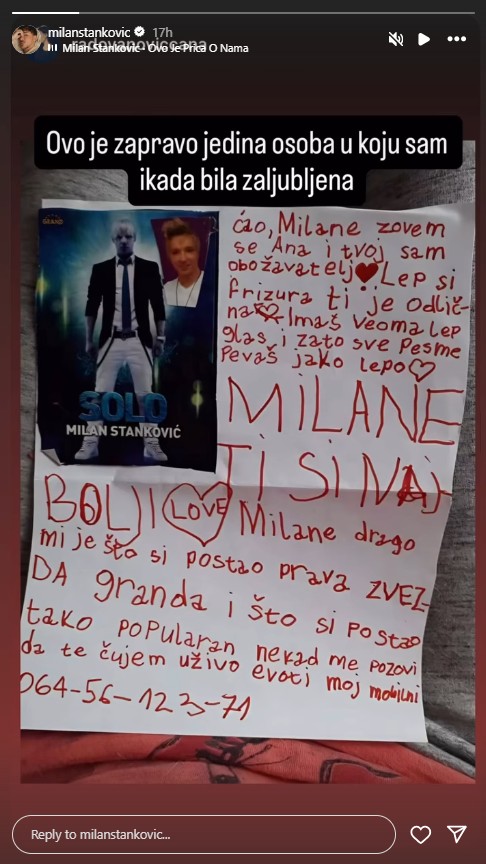 milanstankovic 17h
radovanoviccana
Milan Stanković · Ovo Je Prica O Nama
Ovo je zapravo jedina osoba u koju sam
ikada bila zaljubljena
GRAND
SOLO
MILAN STANKOVIĆ
ćao, Milane zovem
se Ana i tvoj sam
obožavatelj❤Lep si
frizura ti je odlič-
na♡Imaš veoma lep
glas i zato sve Pesme
Pevaš jako lepo♡
MILANE
TI SI NAJ-
BOLJI LOVE Milane drago
mi je što si postao prava ZVEZ-
DA granda i što si postao
tako POPULARAN nekad me pozovi
da te čujem uživo evoti moj mobilni
064-56-123-71
Reply to milanstankovic...